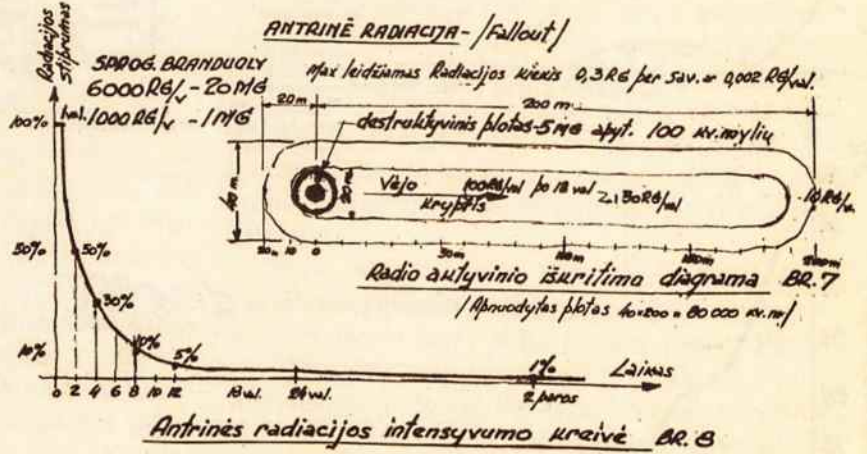 ANTRINĖ RADIACIJA - /Fallout/
Radiacijos stiprumas
SPROG. BRANDUOLY
6000 RG/v - 20 MG
1 val. 1000 RG/v - 1 MG
Max leidžiamas Radiacijos kiekis 0,3 RG per sav. ar 0,002 RG/val.
20 m
200 m.
destruktyvinis plotas - 5 MG apyt. 100 kv. mylių
40 m.
20 m.
Vėjo
kryptis
100 RG/val po 18 val
30 RG/val
10 RG/v.
20 m 10 0 50 m 200 m
Radio aktyvinio iškritimo diagrama BR. 7
/Apnuodytas plotas 40x200 = 80 000 kv. m./
100%
50%
10%
50%
30%
10%
5%
1%
Laikas
0 2 4 6 8 10 12 18 val. 24 val. 2 paros
Antrinės radiacijos intensyvumo kreivė BR. 8